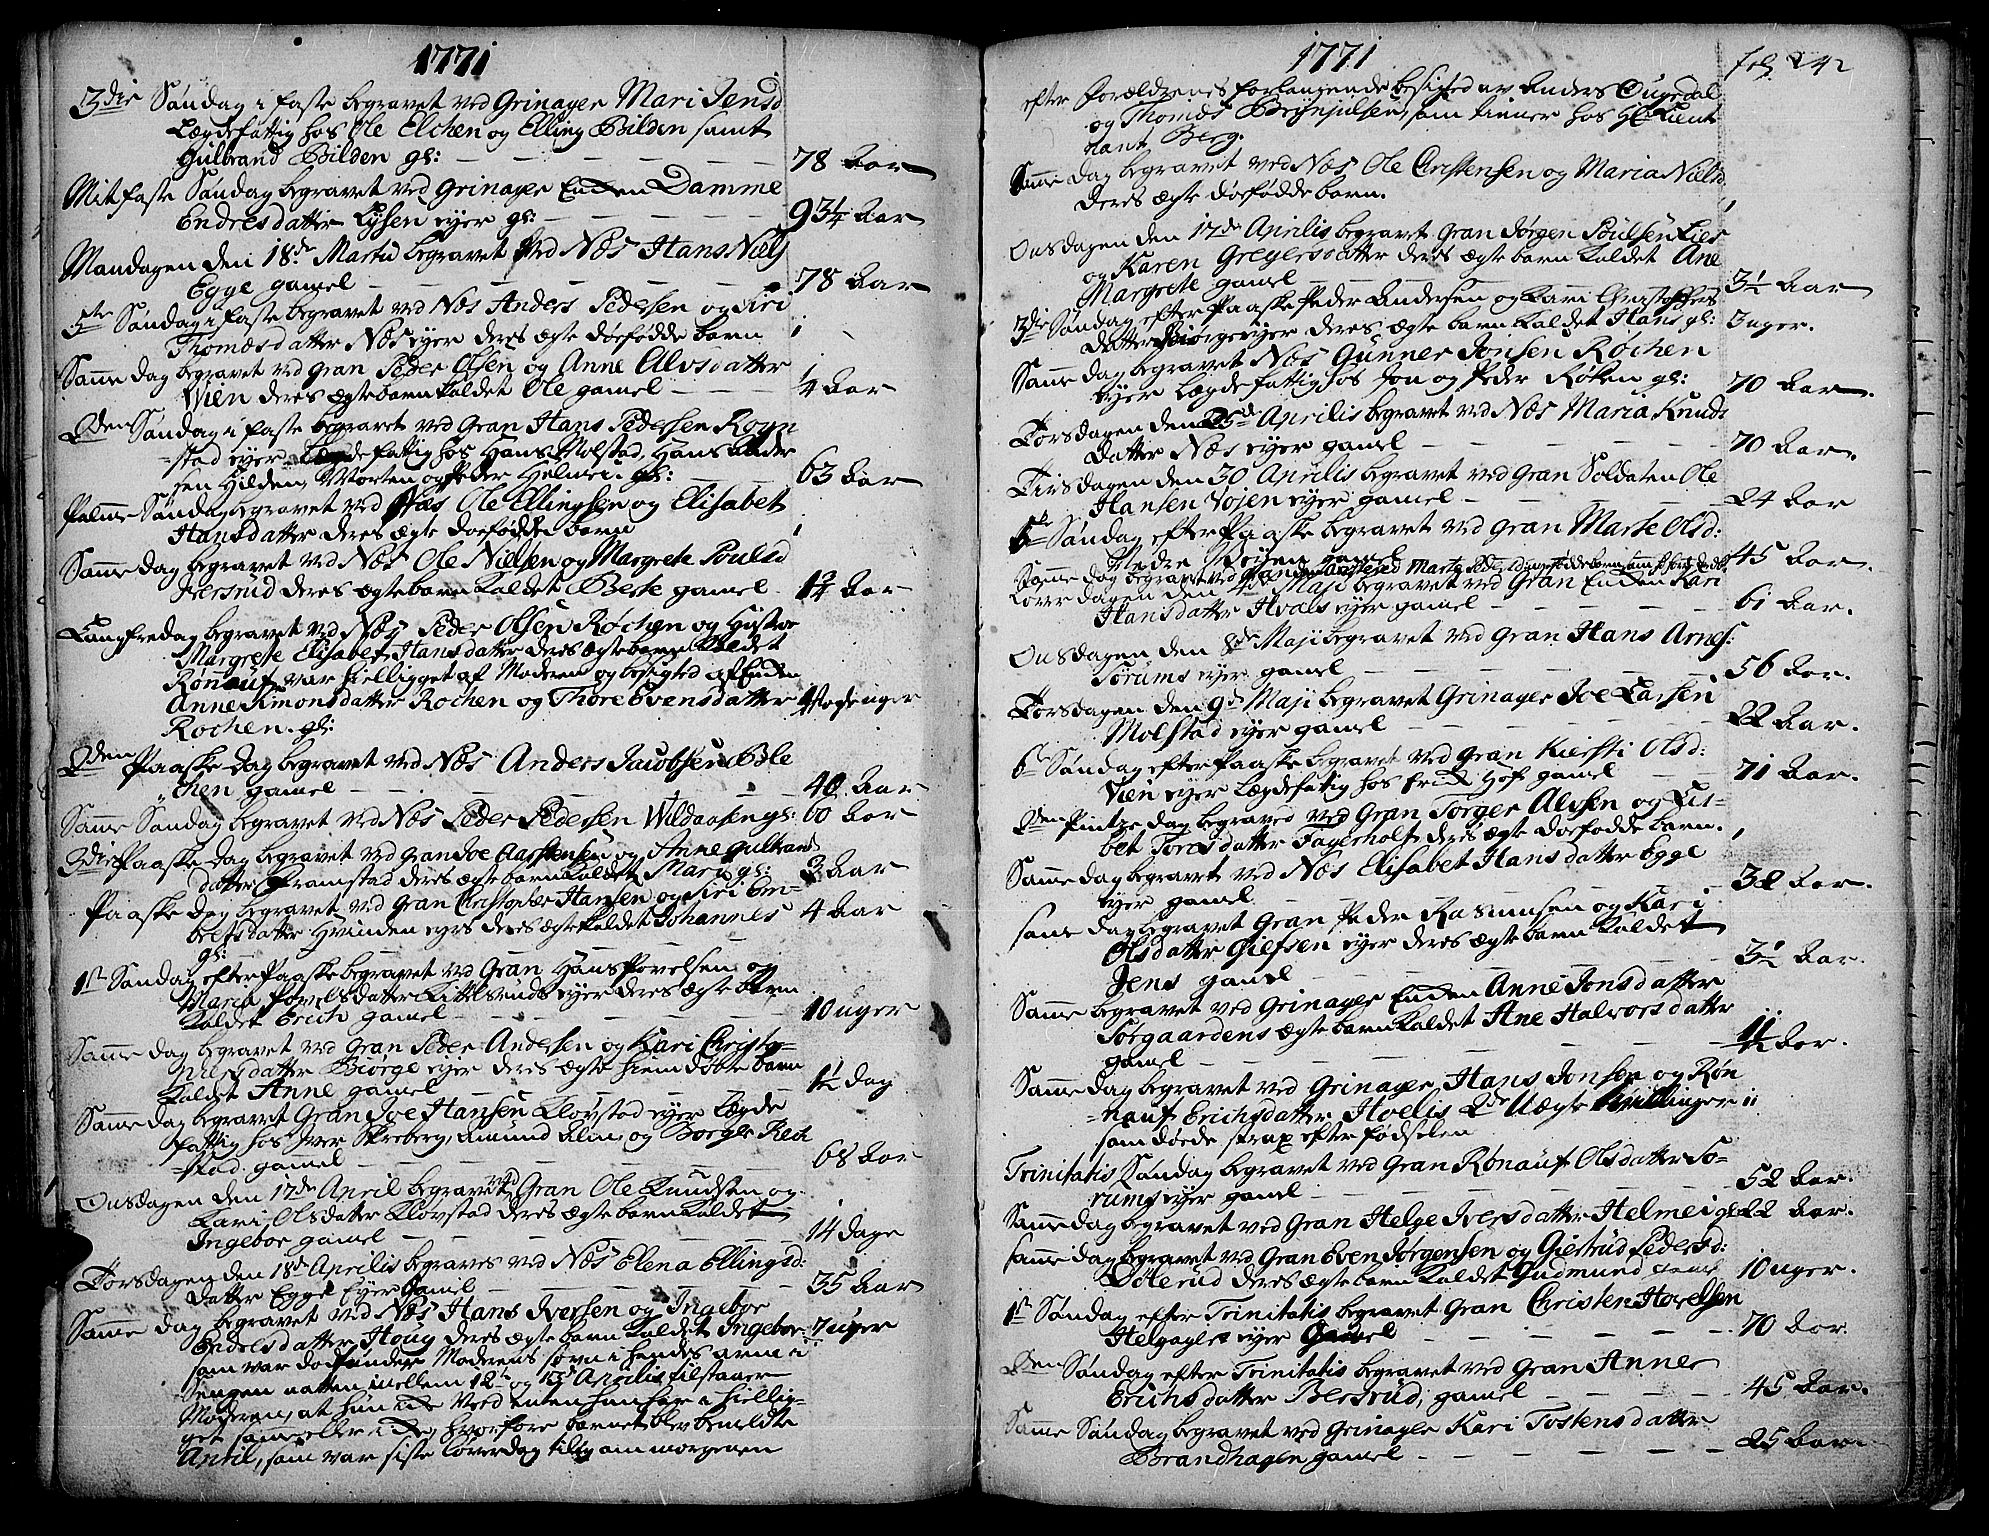 1771
3die Søndag i faste begravet ved Grinager Mari Jensd
Lægdefattig hos Ole Elchen og Elling Bilden samt
Gulbrand Bilden gl: 78 Aar
Mitfaste Søndag begravet ved Grinager Enchen Damme
Endresdatter Lysen eyer gl: 93¼ Aar
Mandagen den 18de Martii begravet ved Næs Hans Niels
Egge gamel 78 Aar
5te Søndag i faste begravet ved Næs Anders Pedersen og Siri
Thomæsdatter Næs eyer deres ægte dødfødde barn 1
Samme dag begravet ved Gran Peder Olsen og Anne Alvsdatter
Vien deres ægte barn kaldet Ole gamel ¼ Aar
2den Søndag i faste begravet ved Gran Hans Pedersen Rogn
=stad eyer Lægdefattig hos Hans Molstad, Hans Ander
sen Hilden, Morten og Peder Helmei gl: 63 Aar
Palme Søndag begravet ved Næs Ole Ellingsen og Elisabet
Hansdatter deres ægte dødfødde barn 1
Samme dag begravet ved Næs Ole Nielsen og Margrete Poulsd
Iversrud deres ægte barn kaldet Berte gamel 1¼ Aar
Langfredag begravet ved Næs Peder Olsen Røchen og Hustroe
Margrete Elisabet Hansdatter deres ægte barn kaldet
Rønauf var hielligget af Moderen og besigted af Enchen
Anne Simonsdatter Rochen og Thore Evensdatter
Rochen. gl:
2den Paaske dag begravet ved Næs Anders Jacobsen Ble
chen gamel 40 Aar
Samme Søndag begravet ved Næs Peder Pedersen Wildaasen gl: 60 Aar
3die Paaske dag begravet ved Gran Joe Carstensen og Anne Gulbrands
datter Framstad deres ægte barn kaldet Mari gl: 3 Aar
Paaske dag begravet ved Gran Christopher Hansen og Siri En=
brectsdatter Hvinden eyes deres ægte kaldet Johannes 4 Aar
gl:
1st Søndag efter Paaske begravet ved Gran Hans Povelsen og
Maria Povelsdatter Kittelsrud eyer deres ægte barn
kaldet Erich gamel 10 uger
Samme dag begravet ved Gran Peder Andersen og Kari Christo=
phersdatter Biørge eyer deres ægte hiemdøbte barn
kaldet Anne gamel 1½ dag
Samme dag begravet Gran Joe Hansen Klovstad eyer Lægde
fattig hos Iver Skreberg, Amund Alm, og Borger Rech
=stad. gamel 68 Aar
Onsdagen den 17de April begravet ved Gran Ole Knudsen og
Kari Olsdatter Klovstad deres ægte barn kaldet
Ingebor gamel 14 dage
Torsdagen den 18de Aprilis begraves ved Næs Elena Ellingsd:
datter Egge Eyer Gamel 35 Aar
Samme dag begravet ved Næs Hans Iversen og Ingebor
Endelsdatter Houg deres ægte barn kaldet Ingebor 7 uger
som var død funden i Moderens søvn i hendes arme i
Sengen natten mellem 12te og 13de Aprilis tilstaaer
Moderen, at hun icke veed enten hun har i hiellig=
get samme eller icke, hvorfore barnet blev bemeldte
April, som var siste Løverdag tilig om morgenen
1771
fol 242
efter Forældrenes forlangende besigted av Anders Ougedal
og Thomæs Brynjulsen, som tiener hos Hr Lieut
nant Berg.
Samme dag begravet ved Næs Ole Christensen og Maria Nielsd
deres ægte dødfødde barn. 1
Onsdagen den 17de Aprilis begravet Gran Jørgen Poulsen Lier
og Karen Gregersdatter deres ægte barn kaldet Ane
Margrete gamel 3½ Aar
3die Søndag efter Paaske Peder Andersen og Kari Christophers
datter Biørge eyer deres ægte barn kaldet Hans gl: 3 uger.
Samme dag begravet Næs Gunner Jonsen Rochen
eyer Lægdefattig hos Jon og Peder Røken gl: 70 Aar.
Torsdagen den 25de Aprilis begravet ved Næs Maria Knuds
datter Næs eyer gamel 70 Aar.
Tirsdagen den 30 Aprilis begravet ved Gran Soldaten Ole
Hansen Vojen eyer gamel 24 Aar
5te Søndag efter Paaske begravet ved Gran Marte Olsd:
Nedre Vøyen gamel 45 Aar.
Samme dag begravet ved
Løverdagen den 4de Maji begravet ved Gran Enchen Kari
Hansdatter Hvals eyer gamel 61 Aar.
Onsdagen den 8de Maji begravet ved Gran Hans Arnes:
Sørums eyer gamel 56 Aar.
Torsdagen den 9de Maji begravet Grinager Joe Larsen
Molstad eyer gamel 22 Aar.
6te Søndag efter Paaske begravet ved Gran Kiersti Olsd:
Vien eyer Lægdefattig hos Erick Hof gamel 71 Aar.
2den Pintze dag begraved ved Gran Torger Alvsen og Lis=
bet Toresdatter Fagerholt deres ægte dødfødde barn. 1
Samme dag begravet ved Næs Elisabet Hansdatter Egge
eyer gamel 38 Aar.
same dag begravet Gran Peder Rasmussen og Kari
Olsdatter Gielsen eyer deres ægte barn kaldet
Jens gamel 3½ Aar.
Samme begravet ved Grinager Enchen Anne Jonsdatter
Sørgaardens ægte barn kaldet Ane Halvorsdatter
gamel 11 Aar.
Samme dag begravet ved Grinager, Hans Jonsen og Røn
=nauf Erichsdatter Hvells 2de Uægte Tvillinger 11
som døede strax efter fødselen
Trinitatis Søndag begravet ved Gran Rønauf Olsdatter So=
rums eyer gamel 52 Aar.
Samme dag begravet ved Gran Helge Iversdatter Helmei gl 22 Aar.
samme dag begravet ved Gran Even Jørgensen og Giertrud Pedersd:
Dølerud deres ægte barn kaldet Gudmund gamel 10 uger.
1st Søndag efter Trinitatis begravet Gran Christen Hovelsen
Helgager eyer Gamel 70 Aar.
2den Søndag efter Trinitatis begravet ved Gran Anne
Erichsdatter Bersrud, gamel 45 Aar.
Samme Søndag begravet ved Grinager Kari Tostensdatter
Brandhagen gamel 25 Aar.